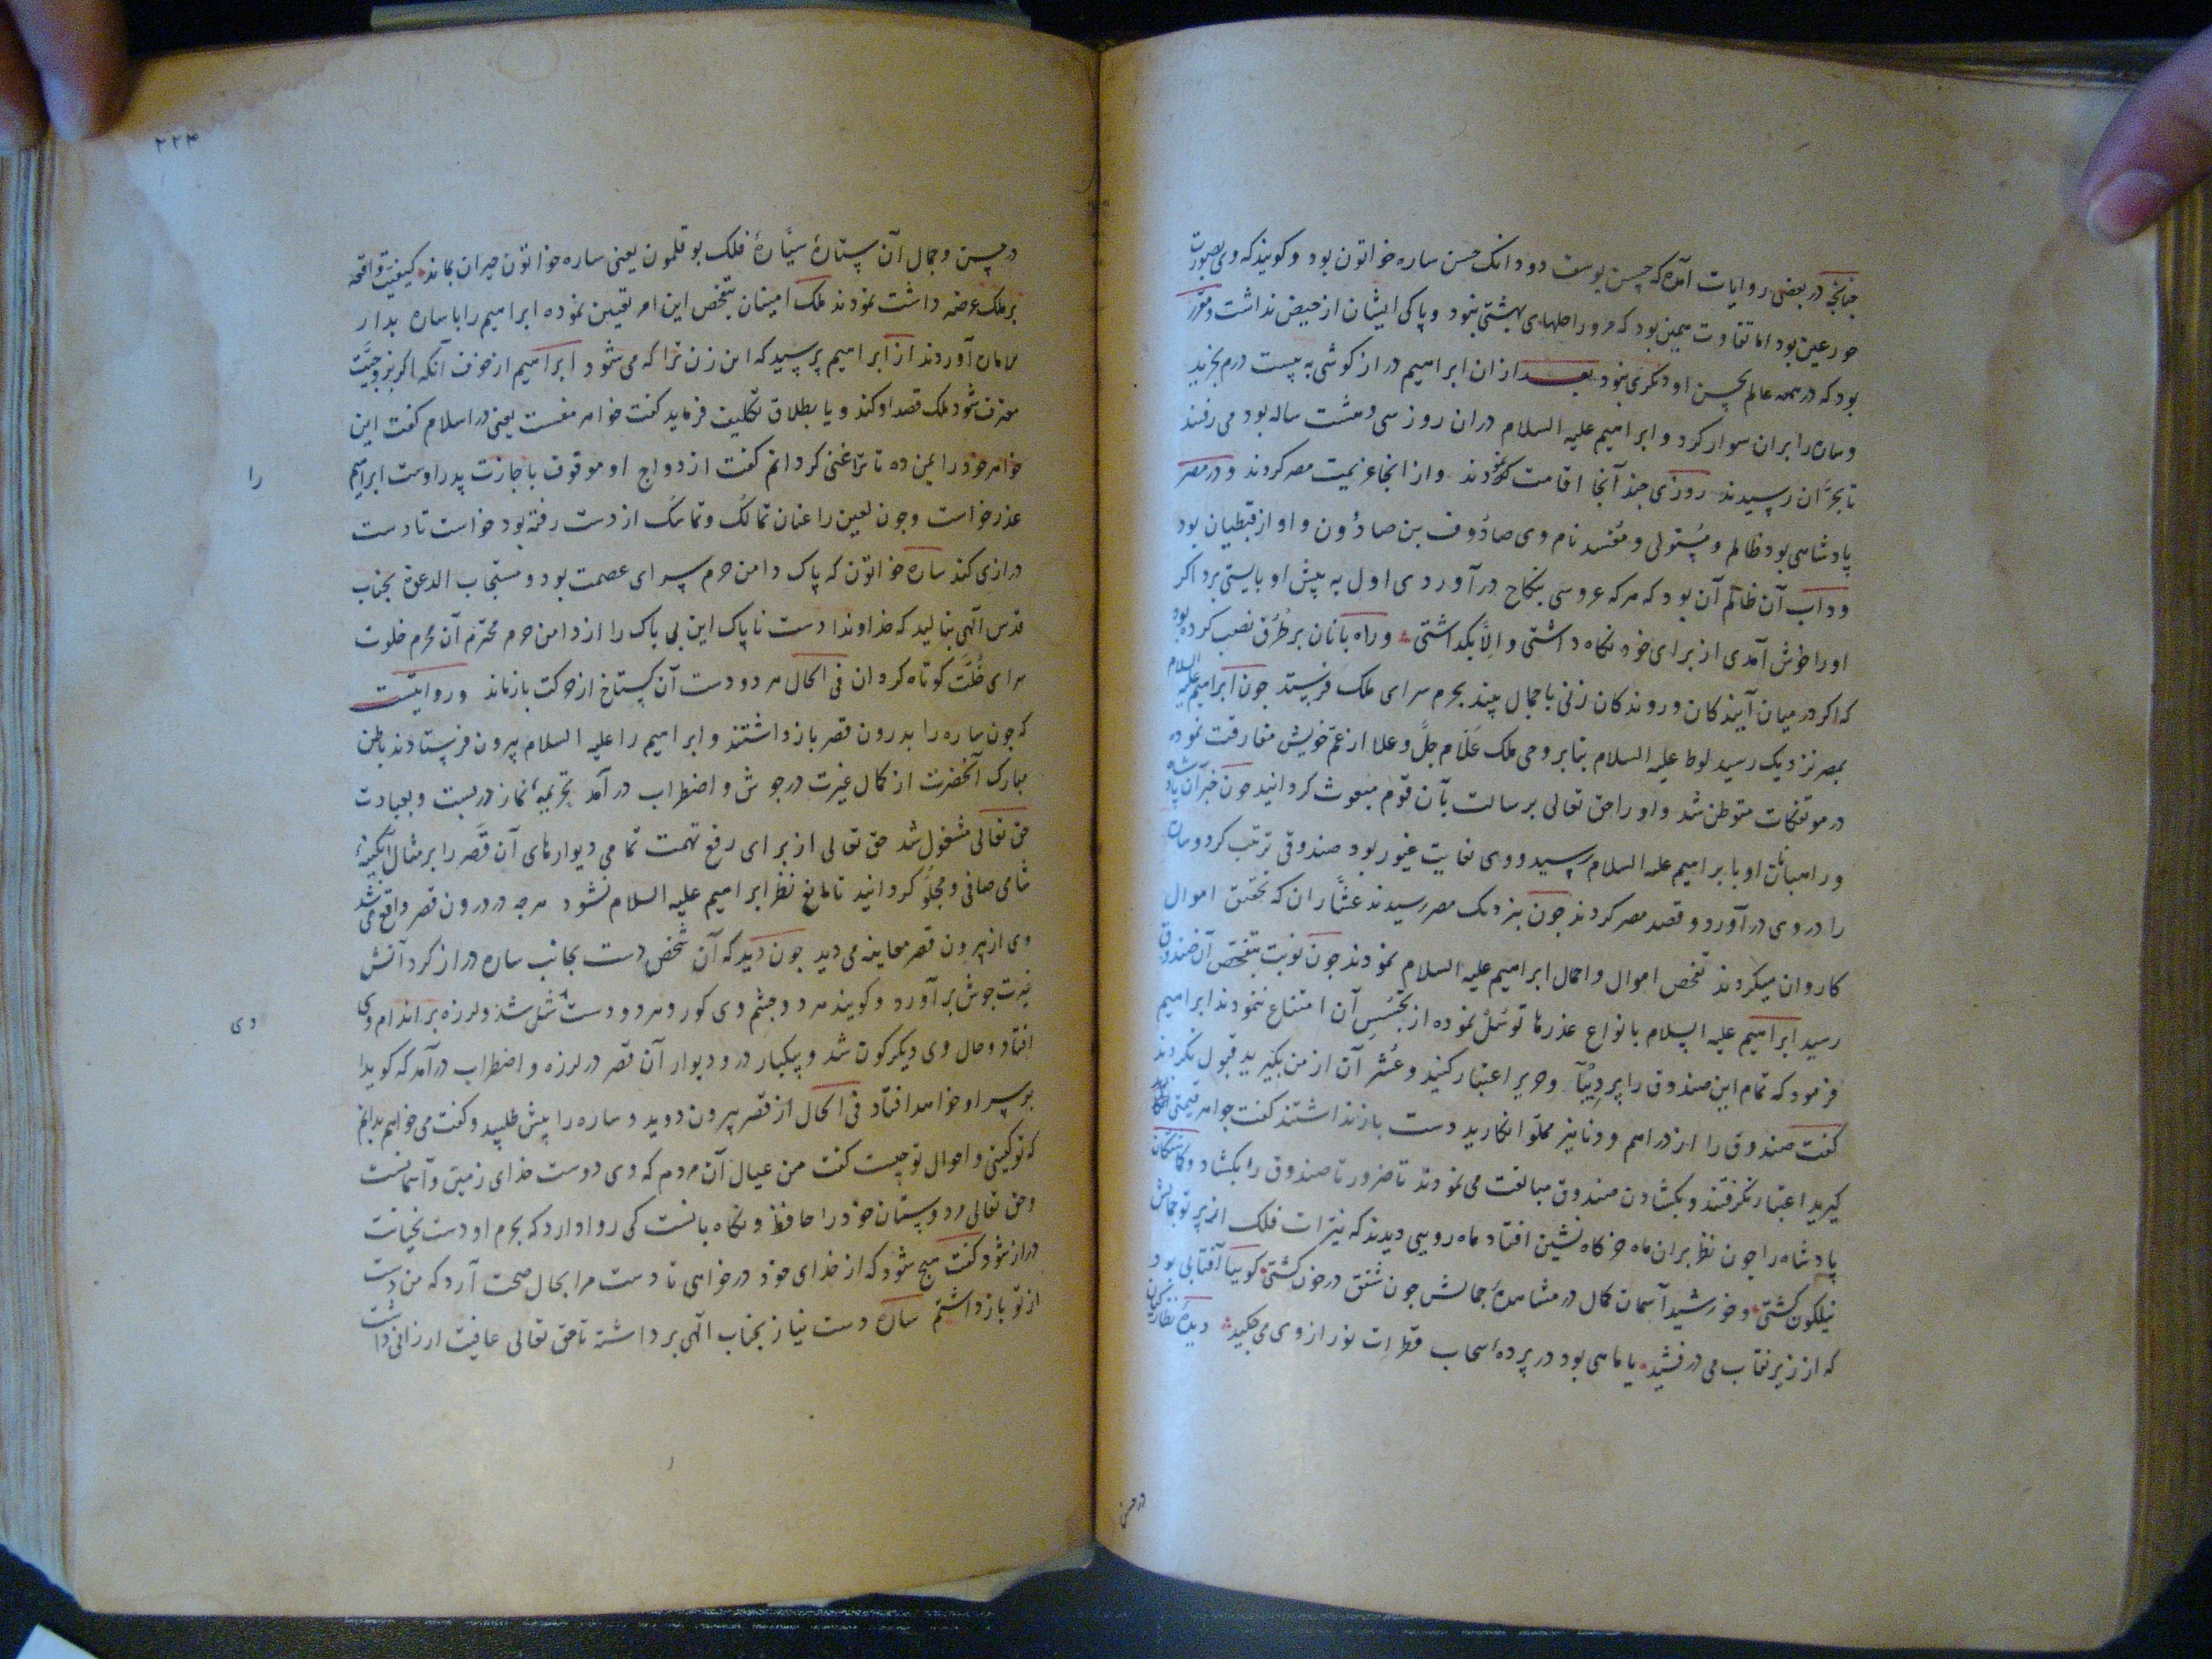 چنانچه در بعضی روایات آمده که حسن یوسف دو دانک حسن ساره خواتون بود و کویند که وی بصورت
حور عین بود اما تفاوت همین بود که مرورا حلهای بهشتی نبود و پاکی ایشان از حیض نداشت و مقرر
بود که در همه عالم بحسن او دیکری نبود بعد از ان ابراهیم دراز کوشی به بیست درم بخرید
و ساره را بران سوار کرد و ابراهیم علیه السلام دران روز سی و هشت ساله بود می رفتند
تا بحران رسیدند روزی چند آنجا اقامت نمودند و از انجا عزیمت مصر کردند و در مصر
پادشاهی بود ظالم و مستولی و مفسد نام وی صادوف بن صادون و او از قبطیان بود
و داب آن ظالم آن بود که هر که عروسی بنکاح درآوردی اول به پیش او بایستی برد اکر
اورا خوش آمدی از برای خود نکاه داشتی و الا بکذاشتی و راه بانان بر طرق نصب کرده بود
که اکر در میان آیندکان و روندکان زنی با جمال بینند بحرم سرای ملک فرستند جون ابراهیم علیه السلام
بمصر نزدیک رسید لوط علیه السلام بنابر وحی ملک علام جل و علا از عم خویش مفارقت نموده
در موتفکات متوطن شد و اورا حق تعالی برسالت بآن قوم مبعوث کردانید جون خبر آن پادشاه
و راهبانان او بابراهیم علیه السلام رسید و وی بغایت غیور بود صندوقی ترتیب کرد و ساره
را در وی درآورد و قصد مصر کردند جون بنزدیک مصر رسیدند عشاران که تحقیق اموال
کاروان میکردند تفحص اموال و احمال ابراهیم علیه السلام نمودند جون نوبت بتفحص آن صندوق
رسید ابراهیم علیه السلام بانواع عذرها توسل نموده از تجسس آن امتناع ننمودند ابراهیم
فرمود که تمام این صندوق را پر دیبا و حریر اعتبار کنید و عشر آن از من بکیرید قبول نکردند
کفت صندوق را از دراهم و دنانیر مملو انکارید دست باز نداشتند کفت جواهر قیمتی
کیرید اعتبار نکرفتند و بکشادن صندوق مبالغت می نمودند تا ضرورتا صندوق را بکشاد و کماشتکان
پادشاه را جون نظر بران ماه خرکاه نشین افتاد ماه رویی دیدند که نیرات فلک از پرتو جمالش
نیلکون کشتی و خورشید آسمان کمال در مشاهده جمالش جون شفق در خون کشتی کوییا آفتابی بود
که از زیر نقاب می درفشید یا ماهی بود در پرده سحاب قطرات نور از وی می جکید دیده نظارکیان
در حسن
۲۲۴
در حسن و جمال آن ستاره سیاره فلک بوقلمون یعنی ساره خواتون حیران بماند کیفیت واقعه
بر ملک عرضه داشت نمودند ملک امینان بتفحص این امر تعیین نموده ابراهیم را با ساره بدار
آوردند از ابراهیم پرسید که این زن ترا که می شود ابراهیم از خوف آنکه اکر بزوجیت
معترف شود ملک قصد او کند و یا بطلاق تکلیف فرماید کفت خواهر منست یعنی در اسلام کفت این
خواهر خود را بمن ده تا ترا غنی کردانم کفت ازدواج او موقوف باجازت پدر اوست ابراهیم
را
عذر خواست و جون لعین را عنان تمالک و تماسک از دست رفته بود خواست تا دست
درازی کند ساره خواتون که پاک دامن حرم سرای عصمت بود و مستجاب الدعوة بجناب
قدس الهی بنالید که خداوندا دست ناپاک این بی باک را از دامن حرم محترم آن محرم خلوت
سرای خلت کوتاه کردان فی الحال هر دو دست آن کستاخ از حرکت بازماند و روایتست
که جون ساره را بدرون قصر باز داشتند و ابراهیم را علیه السلام بیرون فرستادند باطن
مبارک آنحضرت از کمال غیرت در جوش و اضطراب درآمد تحریمه نماز در بست و بعبادت
حق تعالی مشغول شد حق تعالی از برای رفع تهمت تمامی دیوارهای آن قصر را بر مثال آبکینه
شامی صافی و مجلو کردانید تا مانع نظر ابراهیم علیه السلام نشود هرجه در درون قصر واقع می شد
وی از بیرون قصر معاینه می دید جون دید که آن شخص دست بجانب ساره دراز کرد آتش
غیرت جوش برآورد و کویند هر دو جشم وی کور و هر دو دست شل شد و لرزه بر اندام وی
وی
افتاد و حال وی دیکرکون شد و بیکبار در و دیوار آن قصر در لرزه و اضطراب درآمد که کویدا
بر سر او خواهد افتاد فی الحال از قصر بیرون دوید و ساره را پیش طلبید و کفت می خواهم بدانم
که تو کیستی و احوال تو جیست کفت من عیال آن مردم که وی دوست خدای زمین و آسمانست
و حق تعالی مر دوستان خود را حافظ و نکاه بانست کی روا دارد که بحرم او دست خیانت
دراز شود کفت هیچ شود که از خدای خود درخواهی تا دست مرا بحال صحت آرد که من دست
از تو باز داشتم ساره دست نیاز بجناب الهی برداشته تا حق تعالی عافیت ارزانی داشت